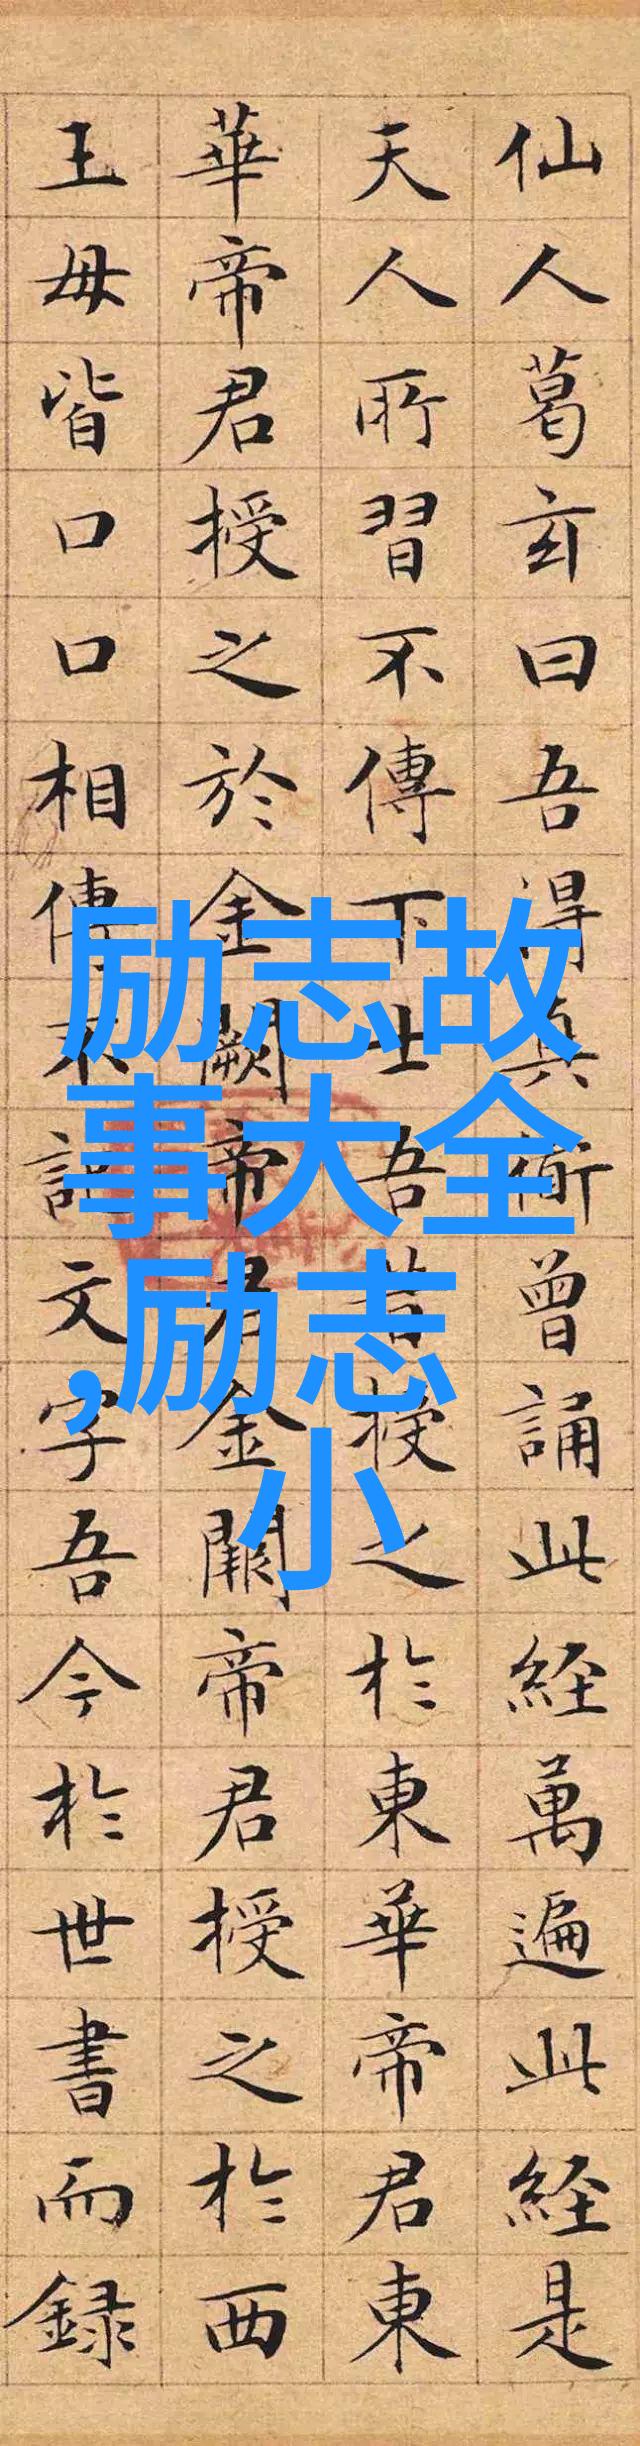 仙人葛玄曰吾得真術曾誦此経萬遍此経是
天人所習不傳下士吾昔授之於東華帝君東
華帝君授之於金闕帝君金闕帝君授之於西
王母皆口口相傳不記文字吾今於世書而録
励志故
事大全
,励志
小